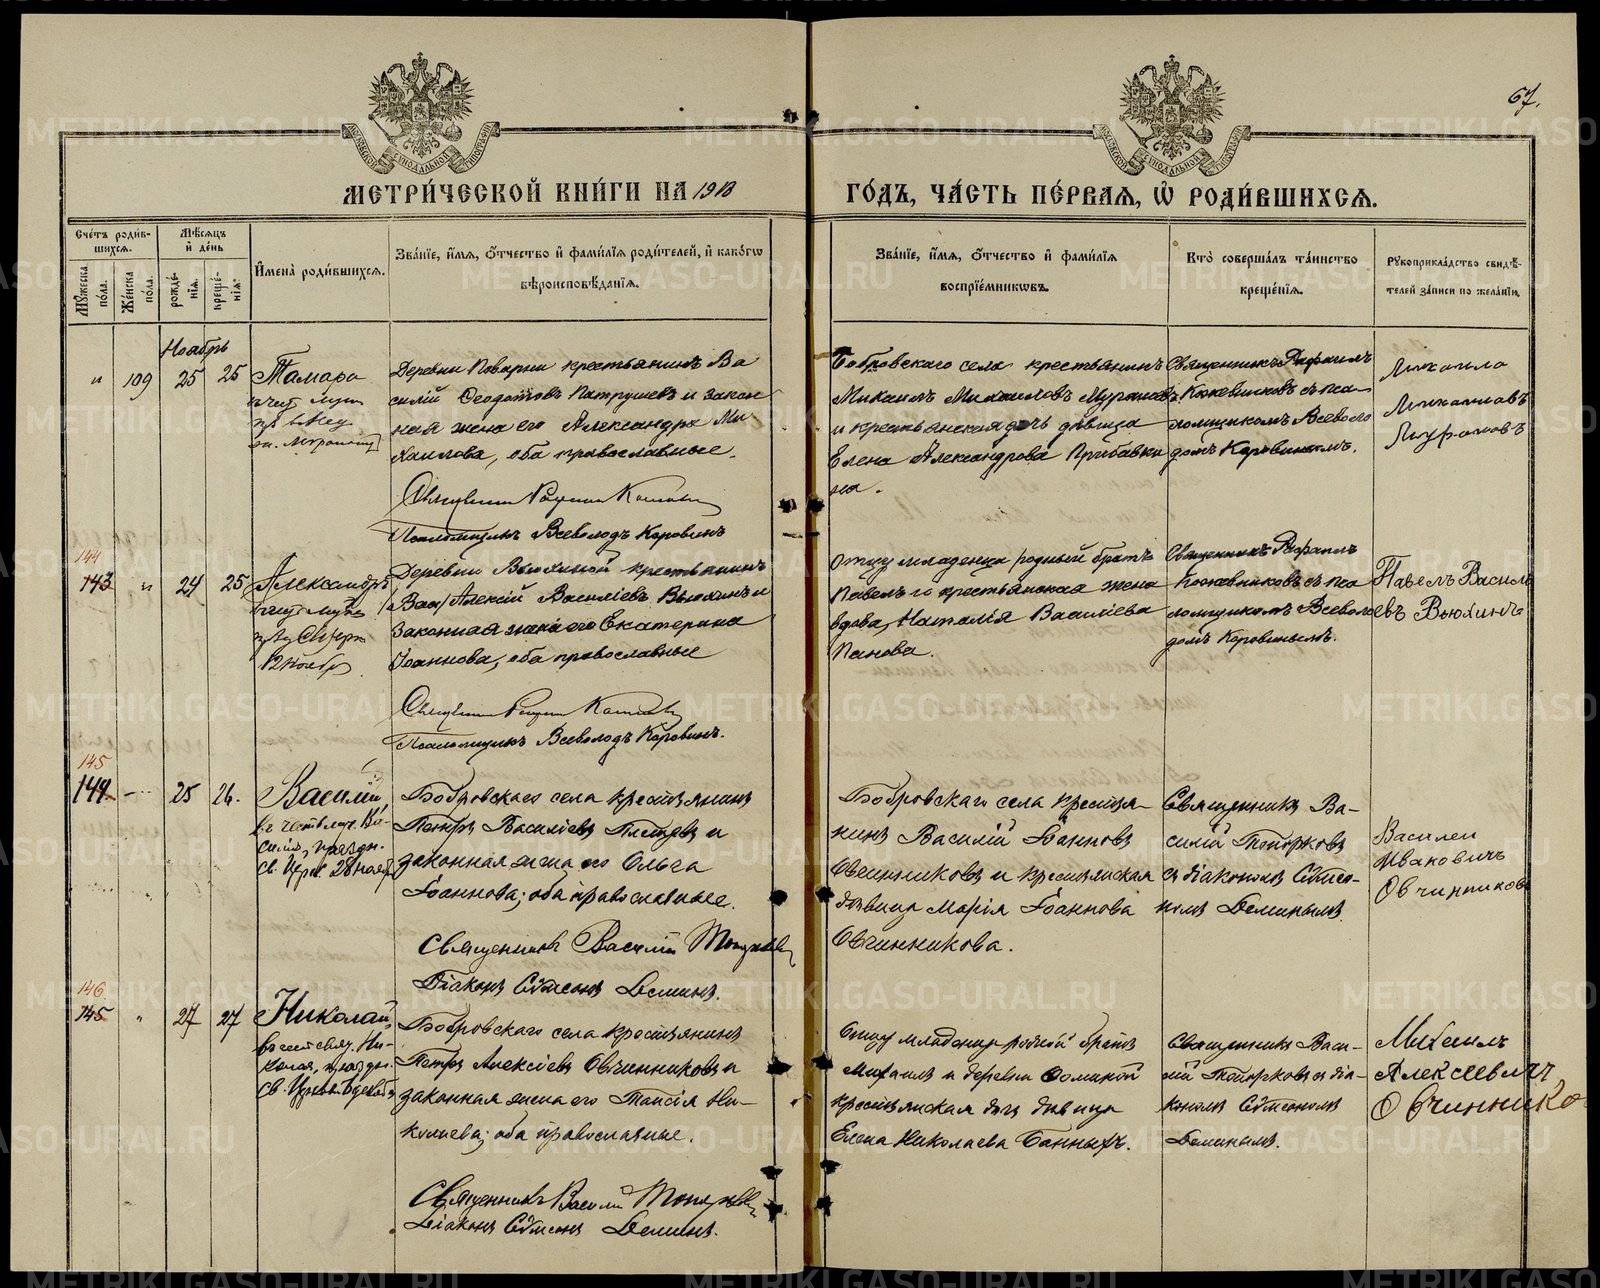 67.
МЕТРИ́ЧЕСКОЙ КНИ́ГИ НА 1913
ГО́ДЪ, ЧА́СТЬ ПЕ́РВАѦ, Ѡ҆ РОДИ́ВШИХСѦ.
Сче́тъ роди́в-
шихсѧ.
Мѣ́сѧцъ
и҆ де́нь
Мꙋ́жеска
по́ла.
Же́нска
по́ла.
рожде́-
нїѧ.
креще́-
нїѧ.
И҆мена̀ роди́вшихсѧ.
Зва́нїе, и҆́мѧ, ѻ҆́тчество и҆ фами́лїѧ роди́телей, и҆ како́гѡ
вѣроисповѣ́данїѧ.
Зва́нїе, и҆́мѧ, ѻ҆́тчество и҆ фами́лїѧ
воспрїе́мникѡвъ.
Кто̀ соверша́лъ та́инство
креще́нїѧ.
Рꙋкоприкла́дство свидѣ́-
телей за́писи по жела́нїю.
Ноябрь
" 109 25 25 Тамара
въ чест. муч.
Деревни Поварни крестьянинъ Ва
силій Ѳеодотовъ Патрушевъ и закон
ная жена его Александра Ми
хаилова, оба православные.
Псаломщикъ Всеволодъ Коровинъ
Бобровскаго села крестьянинъ
Михаилъ Михаиловъ
и крестьянская дочь дѣвица
Елена Александрова Прибавки
на.
Священникъ Рафаилъ
съ пса
ломщикомъ Всеволо
домъ Коровинымъ.
Михаило
Михаиловъ
144
143 " 24 25 Александръ
12 Ноябр
Деревни Вьюхиной крестьянинъ
Алексій Василіевъ Вьюхинъ и
законная жена его Екатерина
Іоаннова, оба православные
Псаломщикъ Всеволодъ Коровинъ.
Отцу младенца родный братъ
Павелъ и крестьянская жена
вдова Наталія Василіева
Панова.
Священникъ Рафаилъ
съ пса
ломщикомъ Всеволо
домъ Коровинымъ.
Павелъ Василь
евъ Вьюхинъ
145
144 — 25 26. Василій,
въ честь муч. Ва-
силія, праздн.
св. Церк. 28 нояб
Бобровскаго села крестьянинъ
Петръ Василіевъ и
законная жена его Ольга
Іоаннова; оба православные.
Священникъ Василій Топорковъ
Діаконъ Сѵмеонъ Деминъ.
Бобровскаго села крестья-
нинъ Василій Іоанновъ
Овчинниковъ и крестьянская
дѣвица Марія Іоаннова
Овчинникова.
Священникъ Ва-
силій Топорковъ
съ діакономъ Сѵмео-
номъ Деминымъ.
Василеи
Ивановичъ
Овчинников
146
145 " 27 27 Николай,
въ честь свят. Ни-
колая, праздн.
св. Церков. 6 декаб
Бобровскаго села крестьянинъ
Петръ Алексіевъ Овчинниковъ и
законная жена его Таисія Ни-
колаева; оба православные.
Священникъ Василій Топорковъ
Діаконъ Сѵмеонъ Деминъ.
Отцу младенца родной братъ
Михаилъ и деревни Ѳоминой
крестьянская дочь дѣвица
Елена Николаева Банныхъ.
Священникъ Васи-
лій Топорковъ съ діа-
кономъ Сѵмеономъ
Деминымъ.
Михаилъ
Алексеевичъ
Овчинико